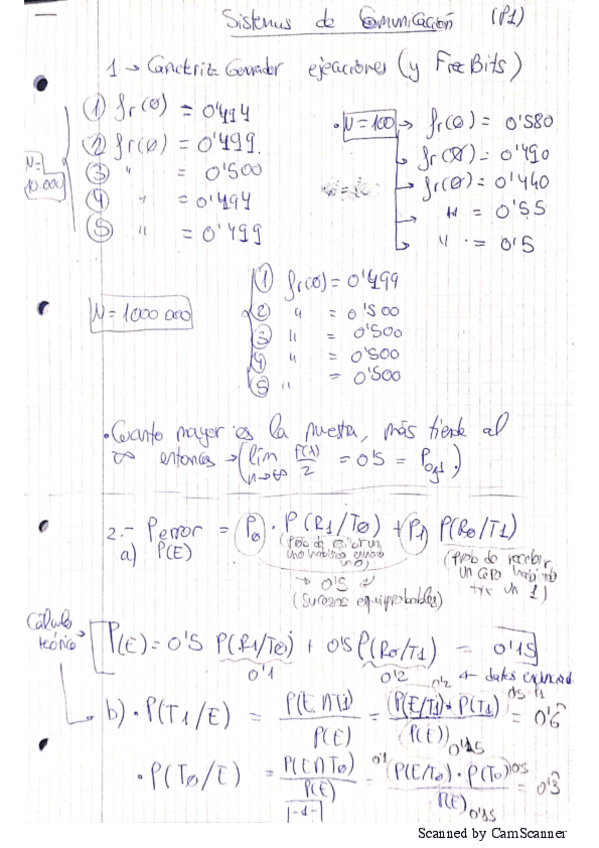 Sistemas de Comunicación (P1)
1 → Caracteriz Generador ejecuciones (y Frec Bits)
N = 10.000
① fr(0) = 0'494
② fr(0) = 0'499.
③ " = 0'500
④ " = 0'494
⑤ " = 0'499
• N = 100 → fr(0) = 0'580
fr(0) = 0'490
fr(0) = 0'440
" = 0'55
" = 0'5
N = 1000 000
① fr(0) = 0'499
② " = 0'500
③ " = 0'500
④ " = 0'500
⑤ " = 0'500
• Cuanto mayor es la muestra, más tiende al
∞ entonces → (lim n→∞ f(λ)/2 = 0'5 = P0,1.)
2.- Perror = P0 · P(R1/T0) + P1 P(R0/T1)
a) P(E)
(prob de recibir un uno habiendo enviado un 0)
(prob de recibir un cero habiendo tx un 1)
→ 0'5
(Sucesos equiprobables)
Cálculo teórico
P(E) = 0'5 P(R1/T0) + 0'5 P(R0/T1) = 0'15
0'1 0'2 ← datos enunciad
b) • P(T1/E) = P(E∩T1)/P(E) = 0'2 P(E/T1) · P(T1) 0'5 / P(E) 0'15 = 0'6̂
• P(T0/E) = P(E∩T0)/P(E) = 0'1 P(E/T0) · P(T0) 0'5 / P(E) 0'15 = 0'3̂
|-1-|
Scanned by CamScanner